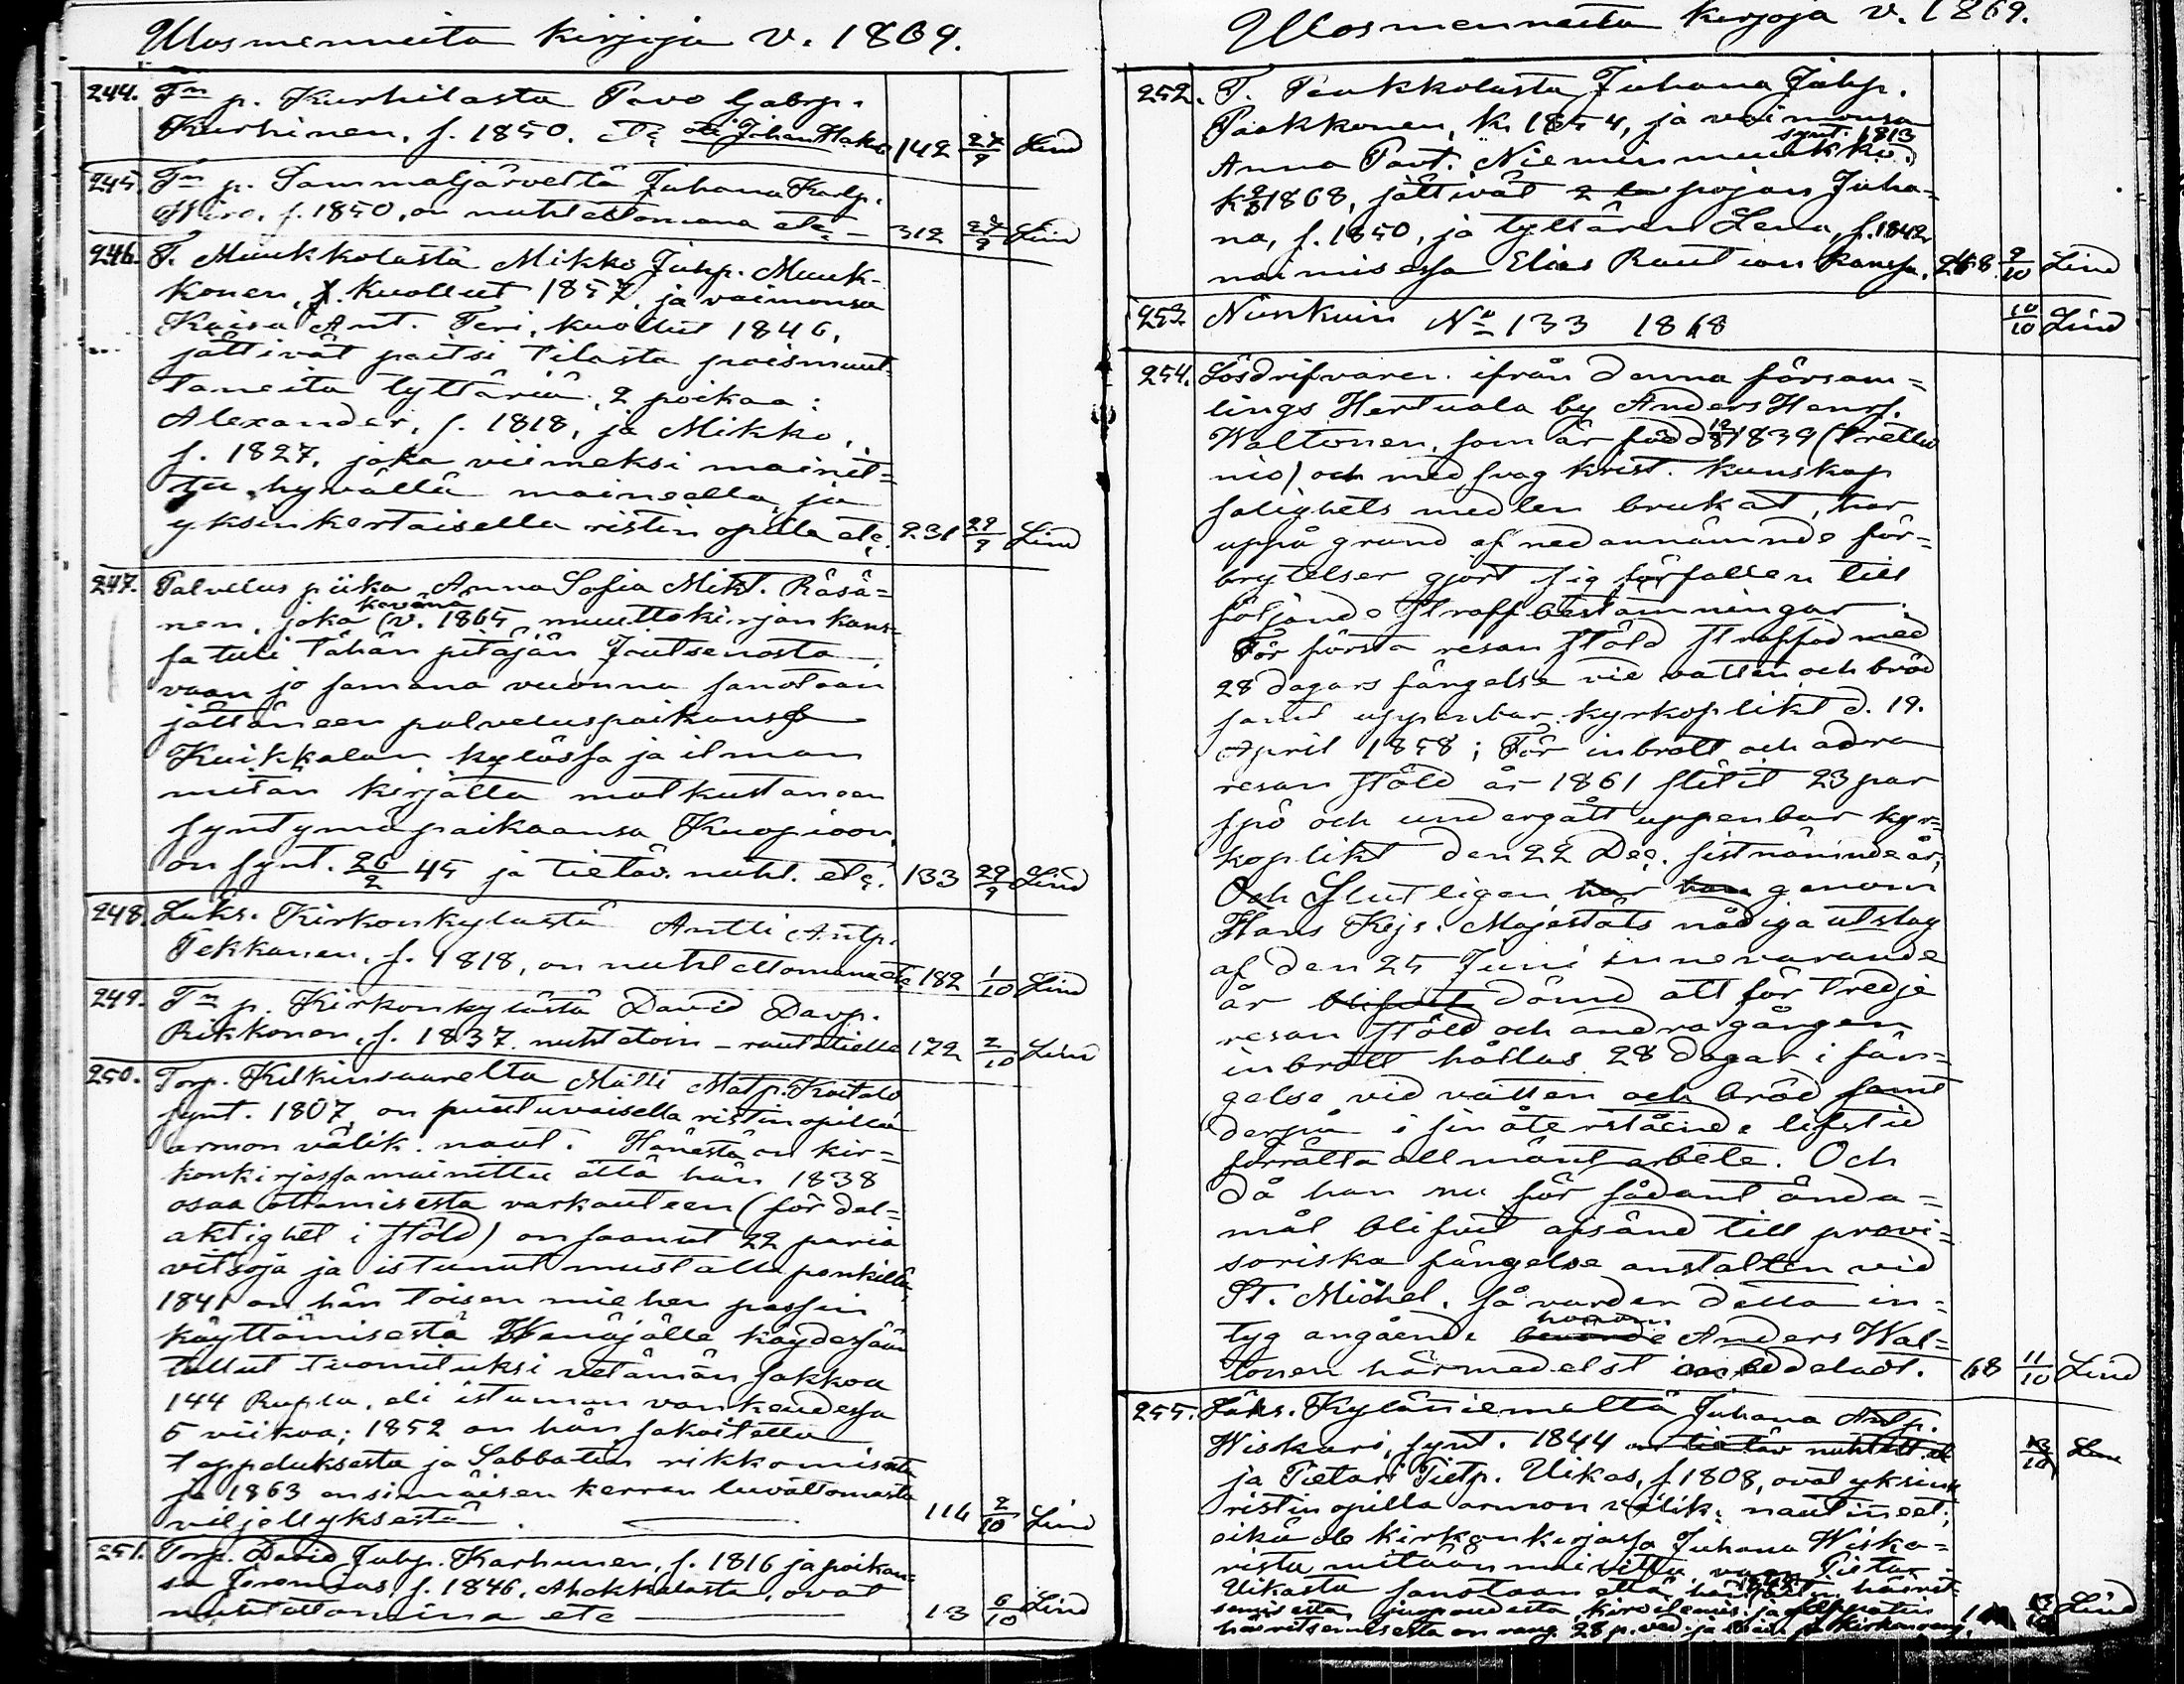 Ulosmenneitä kirjoja v. 1869.
244. Tn p. Kurhilasta Pavo Gabrp.
Kurhinen, f. 1850. 142 27/9 Lind
245. Tn p. Sammaljärveltä Juhana Karlp.
Wiro, f. 1850, on nuhtettomana etc. 312 27/9 Lind
246. T. Muukkolasta Mikko Juhp. Muuk-
konen, kuollut 1857, ja vaimonsa
Kaisa Ant. Teri, kuollut 1846,
jättivät paitsi tilasta poismuut-
taneita tyttäriä, 2 poikaa:
Alexander, f. 1818, ja Mikko,
f. 1827, joka viimeksi mainit-
tu hyvällä maineella ja
yksinkertaisella ristin opilla etc. 231 29/9 Lind
247. Palvelus piika Anna Sofia Mikt. Räsä-
nen, joka keväänä v. 1865 muuttokirjan kans-
sa tuli tähän pitäjän Joutsenosta,
vaan jo samana vuonna sanotaan
jättäneen palveluspaikansa
Kuikkalan kylässä ja ilman
mitän kirjätta matkustaneen
syntymäpaikaansa Kuopioon,
on synt. 26/2 45 ja tietäv. nuht. etc. 133 29/9 Lind
248. Luks. Kirkonkylästä Antti Antp.
Pekkanen, f. 1818, on nuhtettomana etc 182 1/10 Lind
249. Tn p. Kirkonkylästä David Davp.
Rikkonen, f. 1837. nuhtetoin – rautatielle 172 2/10 Lind
250. Torp. Kilkinsaarelta Matti Matp. Koitalo
synt. 1807, on puuttuvaisella ristinopilla
armon välik. naut. Hänestä on kir-
konkirjassa mainittu että hän 1838
osaa ottamisesta varkauteen (för del-
aktighet i stöld) on saanut 22 paria
vitsoja ja istunut mustalla penkillä,
1841 on hän toisen miehen passin
käyttämisestä Wenäjälle käydessään
tullut tuomituksi vetämän sakkoa
144 Rupla, eli istuman vankeudessa
5 viikoa; 1852 on hän sakoitettu
tappeluksesta ja Sabbatin rikkomisesta
ja 1863 ensimäisen kerran luvattomasta
viljellyksestä. 114 2/10 Lind
251. Torp. David Juhp. Karhunen, f. 1816 ja poikan-
sa Jeremias, f. 1846, Ahokkalasta, ovat
nuhtettomina etc 13 6/10 Lind
Ulosmenneitä kirjoja v. 1869.
252. T. Paakkolasta Juhana Juhp.
Paakkonen, k. 1854, ja vaimonsa
synt. 1813
Anna Pavt. Nieminmuukko
k 1868, jättivät 2 pojan Juha-
na, f. 1850, ja tyttären Lena, f. 1842,
naimisessa Elias Rautian kanssa. 268 9/10 Lind
253. Niinkuin No 133 1868 10/10 Lind
254. Lösdrifvaren ifrån denna försam-
lings Hertuala by Anders Henrs.
Waltonen, som är född 12/8 1839 (trettio
nio) och med svag krist. kunskap
salighets medlen brukat, har
uppå grund af nedannämnde för-
brytelser gjort sig förfallen till
följande straffbestämningar:
För första resan stöld straffad med
28 dagars fängelse vid vatten och bröd
samt uppenbar kyrkoplikt d. 19.
April 1858; För inbrott och adra
resan stöld år 1861 slitit 23 par
spö och undergått uppenbar kyr-
koplikt den 22 Dec. sistnämnde år;
Och Slutligen har han genom
Hans Kejs. Majestäts nådiga utslag
af den 25 Juni innevarande
år blifvit dömd att för tredje
resan stöld och andra gången
inbrott hållas 28 dagar i fän-
gelse vid vatten och bröd samt
derpå i sin återstående lifstid
förrätta allmänt arbete. Och
då han nu för sådant ända-
mål blifvit afsänd till provi-
soriska fängelse anstalten vid
St. Michel, så varder detta in-
tyg angående honom Anders Wal-
tonen härmedelst meddeladt. 68 11/10 Lind
255. Luks. Kyläniemeltä Juhana Antp.
Wiskari, synt. 1844 on tietäv nuhtett. etc
ja Pietari Pietp. Uikas, f. 1808, ovat yksink
ristin opilla armon välik. nautineet,
eikä ole kirkonkirjassa Juhana Wiska-
rista mitään mainittu, vaan Pietar
Uikasta sanotaan että